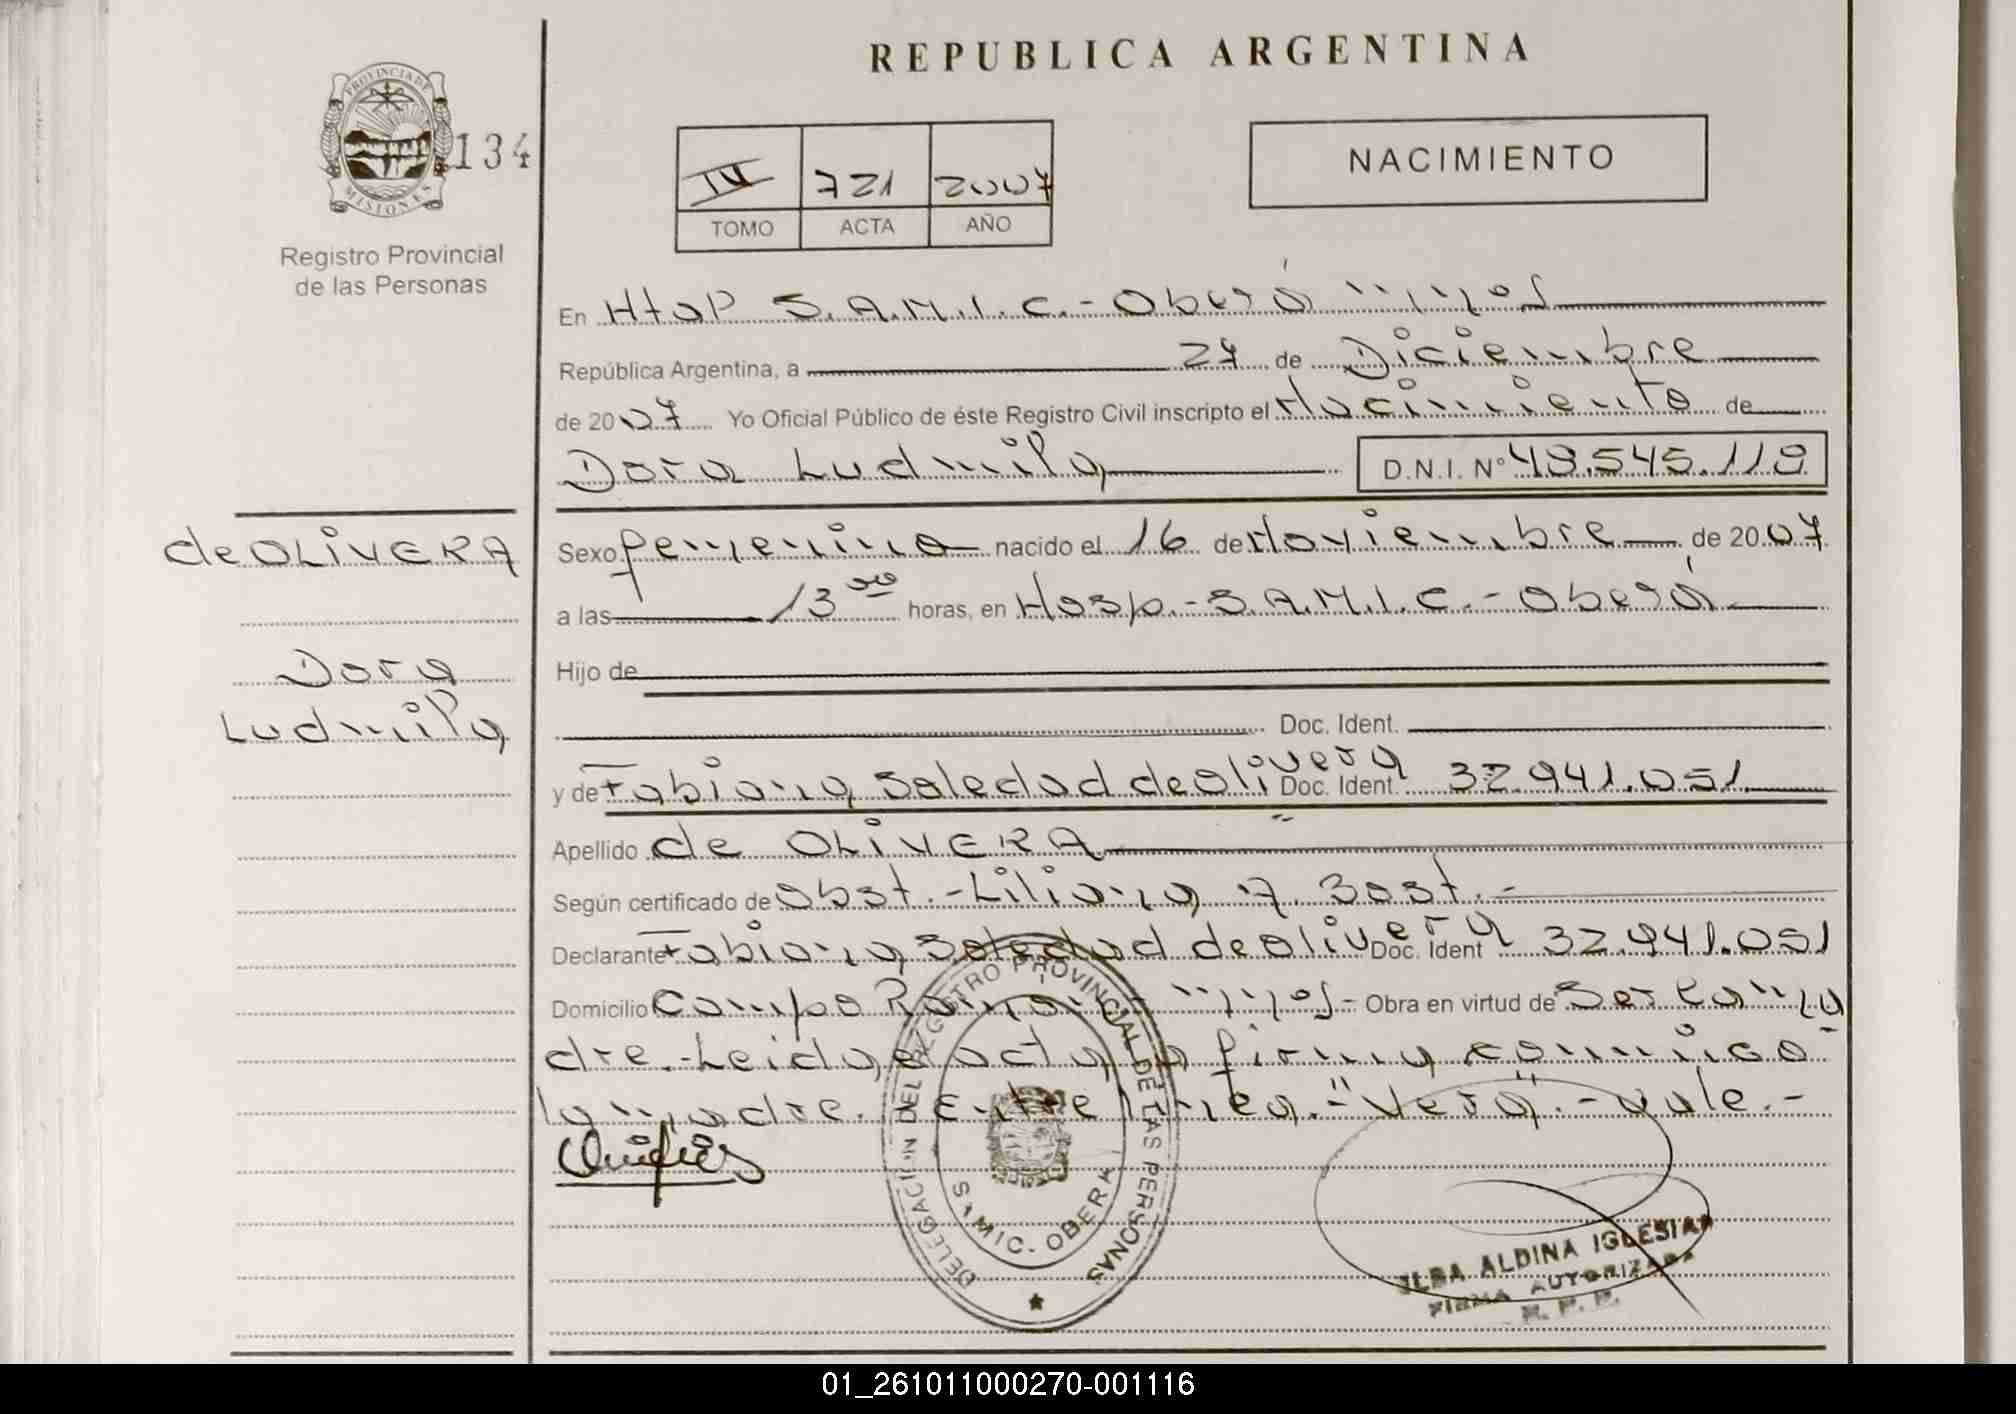 REPUBLICA ARGENTINA
PROVINCIA DE MISIONES
134
Registro Provincial
de las Personas
IV 721 2007
TOMO ACTA AÑO
NACIMIENTO
En Htap S.A.M.I.C.- Oberá
República Argentina, a 27 de Diciembre
de 2007 Yo Oficial Público de éste Registro Civil inscripto el Nacimiento de
Dora Ludmila D.N.I. Nº 48.545.118
de OLIVERA
Dora
Ludmila
Sexo femenino nacido el 16 de Noviembre de 2007
a las 13 00 horas, en Hosp.- S.A.M.I.C.- Oberá
Hijo de
Doc. Ident.
y de Fabiana Soledad de Olivera Doc. Ident. 32.941.051
Apellido de OLIVERA
Según certificado de Obst.- Liliana
Declarante Fabiana Soledad de Olivera Doc. Ident 32.941.051
Domicilio Campo Ramón - Obra en virtud de Ser la ma
dre.- Leida el acta la firma conmigo
la madre. Entre linea.- "Vera".- vale.-
DELEGACION DEL REGISTRO PROVINCIAL DE LAS PERSONAS
S.A.MIC. OBERA
ILBA ALDINA IGLESIAS
FIRMA AUTORIZADA
R. P. P.
01_261011000270-001116